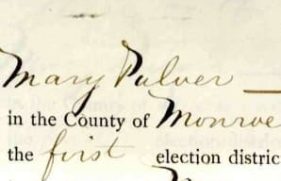 Mary Pulver
in the County of Monroe
the first election distric